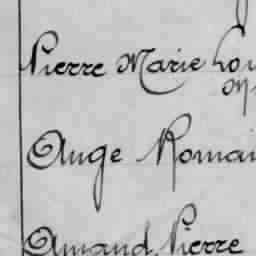 Pierre Marie Lou
M
Ange Romai
Amand, Pierre